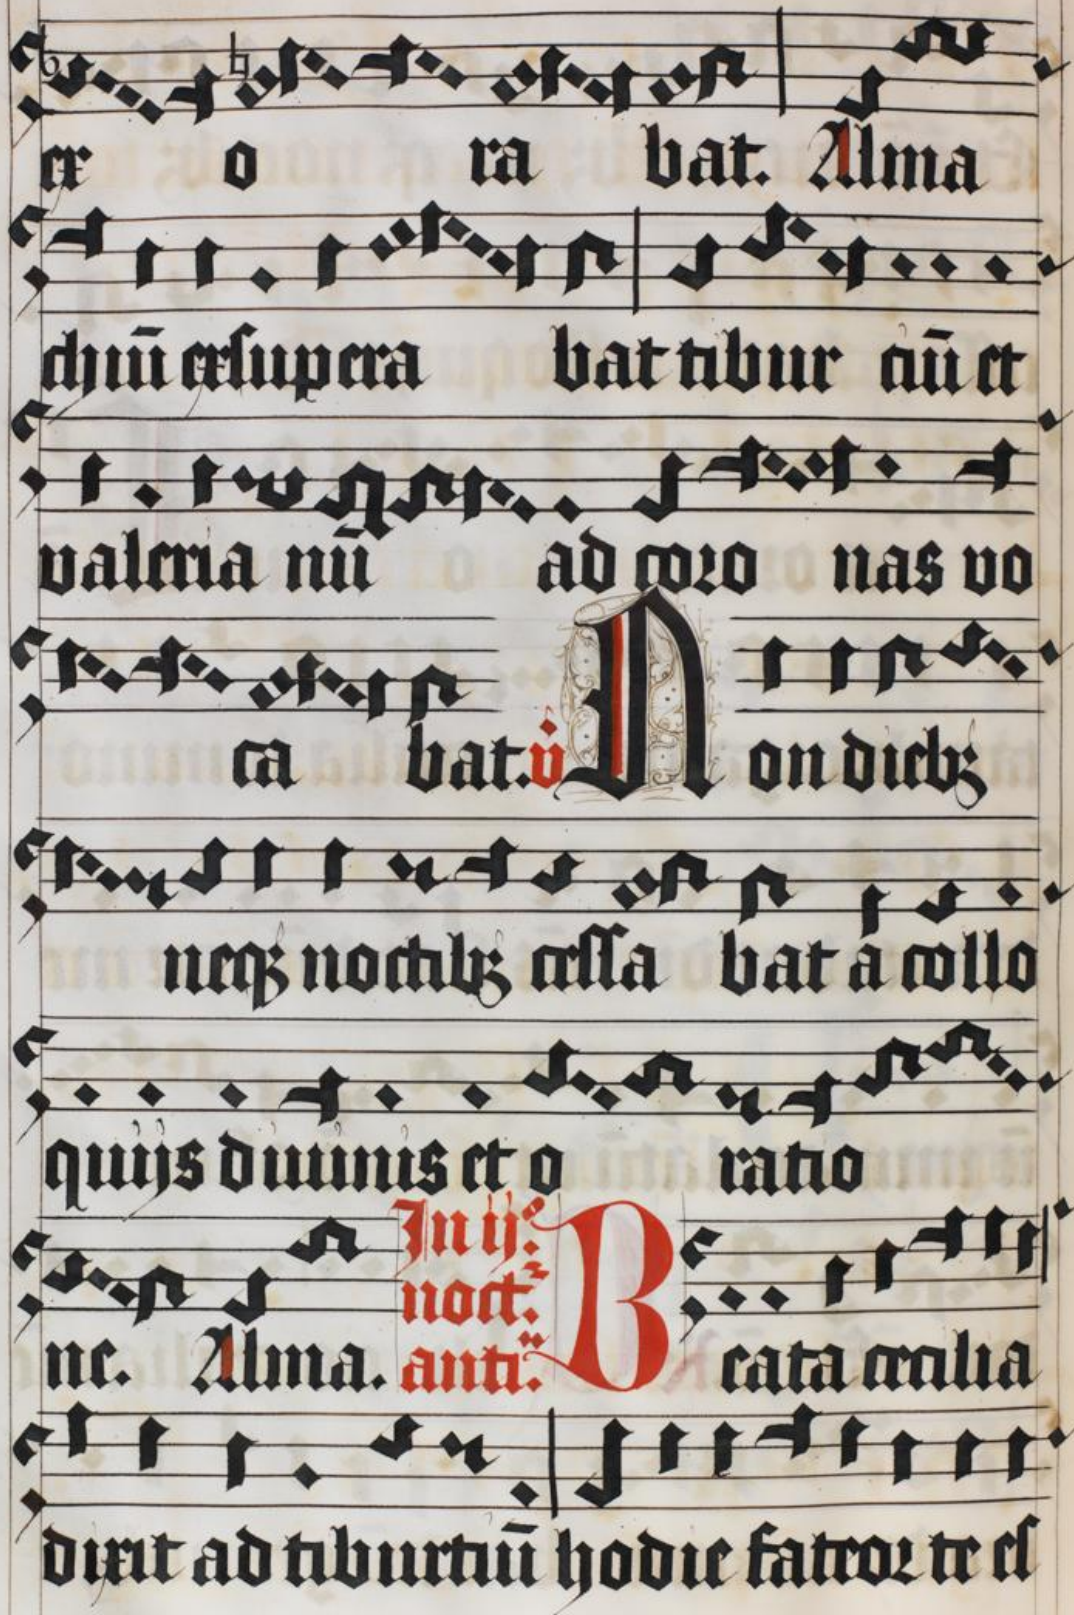 ex o ra bat. Alma
chiū exsupera bat tibur ciū et
valeria nū o ad coro nas vo
ca bat. v̇ Non diebꝫ
neqꝫ noctibꝫ cessa bat a collo
quijs diuinis et o ratio
ne. Alma. In ij. noct. anti. Beata cecilia
dixit ad tiburtiū hodie fateor te es